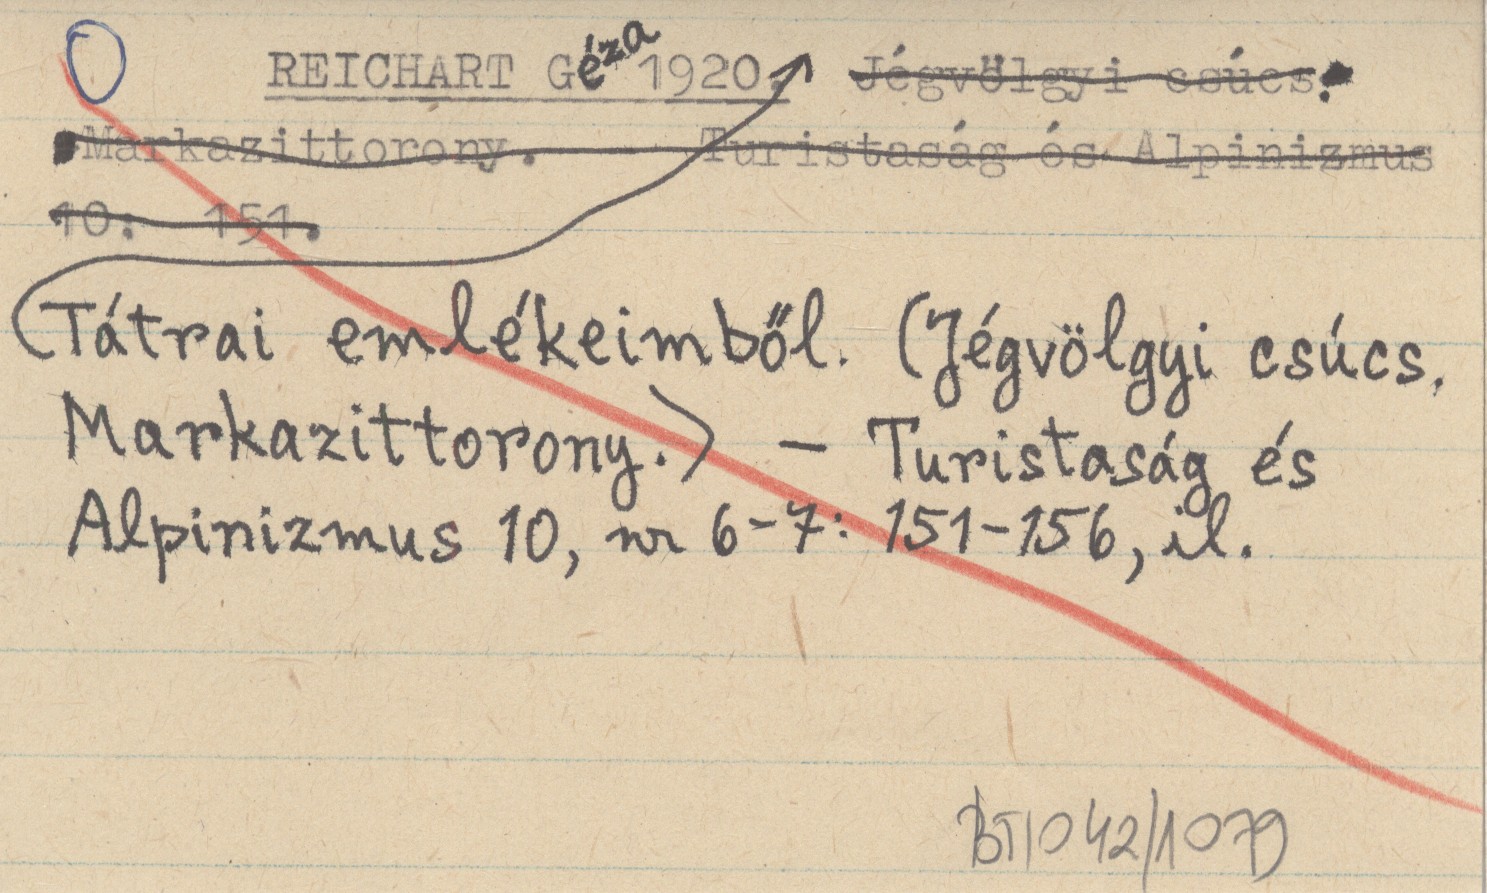 REICHART Géza 1920. Jégvölgyi csúcs.
Markazittorony. Turistaság és Alpinizmus
10: 151.
Tátrai emlékeimből. (Jégvölgyi csúcs.
Markazittorony.) – Turistaság és
Alpinizmus 10, nr 6-7: 151-156, il.
BT/042/1079